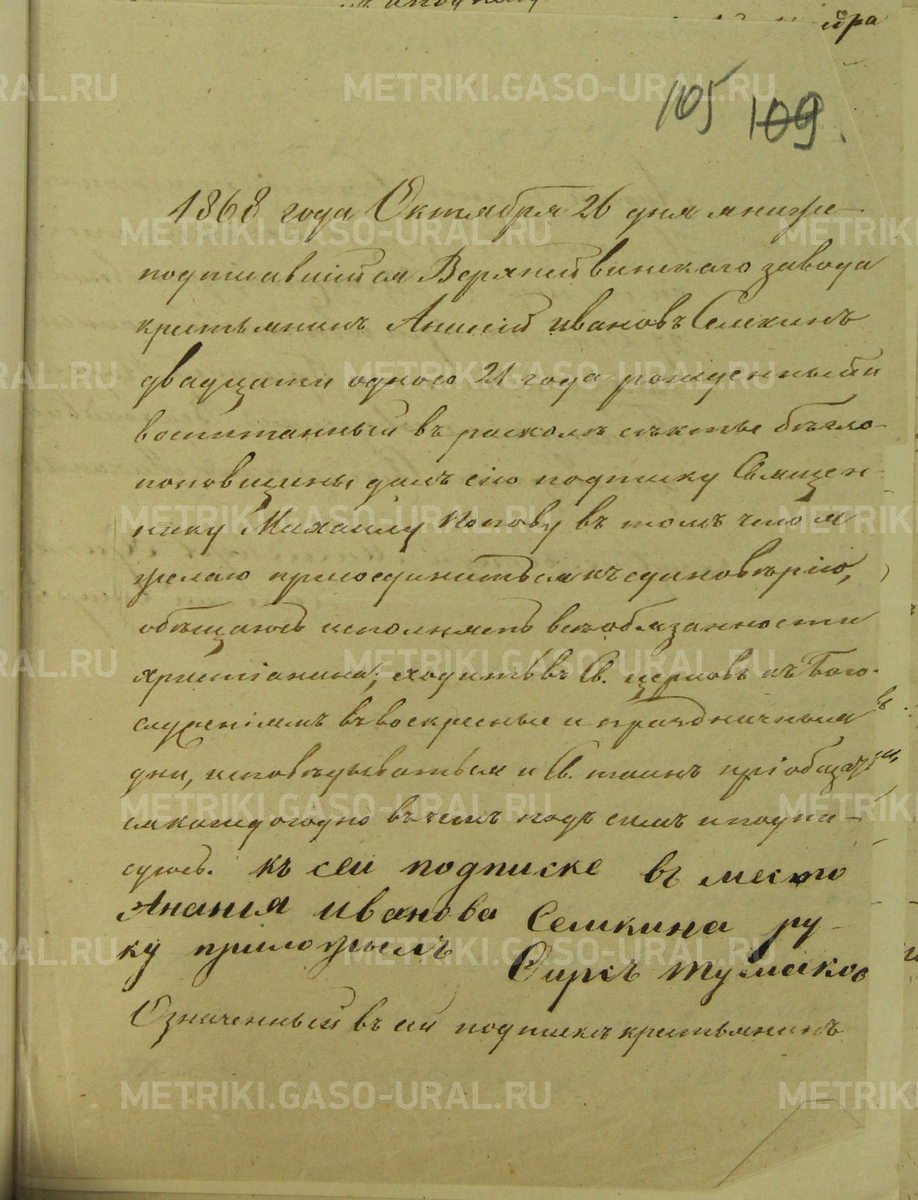 105 109.
1868 года Октября 26 дня мниже-
подписавшійся Верхнейвинскаго завода
крестьянинъ Ананій Ивановъ Семкинъ
двадцати одного 21 года рожденный и
воспитанный въ расколѣ сѣктѣ бѣгло-
поповщины, далъ сію подписку Священ-
нику Михаилу Попову въ томъ что я
желаю присоединиться къ единовѣрію,
обѣщаюсь исполнять всѣ обязанности
христіанина; ходить въ Св. церковь къ Бого-
служеніямъ въ воскресные и праздничные
дни, исповѣдываться и Св. таинъ пріобщать
ся каждогодно въ чемъ подъ симъ и подпи-
суюсь. къ сеи подписке въ место
Анания иванова Семкина ру-
ку приложылъ
тумаков
Означенный въ сей подпискѣ крестьянинъ
METRIKI.GASO-URAL.RU